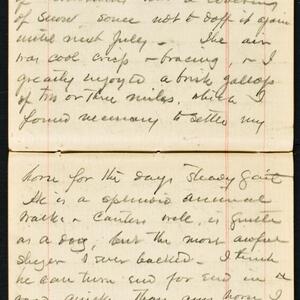 of snow, sonce not to doff it again
until next July. — The air
was cool crisp & bracing, & I
greatly enjoyed a brisk gallop
of two or three miles, which I
found necessary to settle my
horse for the days steady gait
He is a splendid animal
racks & canters well, is gentle
as a dog, but the most awful
shyer I ever backed. I think
he can turn end for end in
and quicker than any horse I